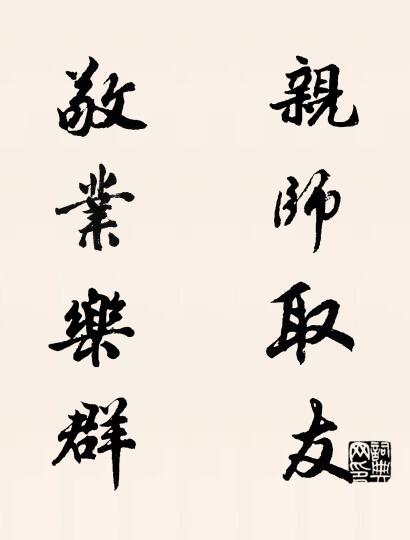 親師取友
敬業樂群
詞典网印